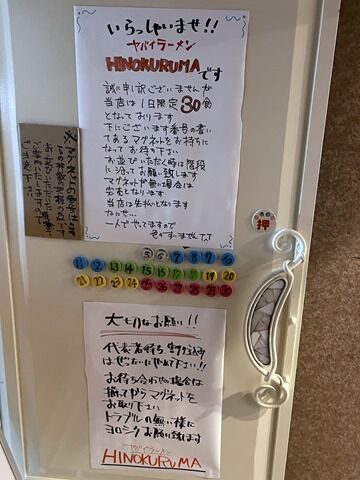 いらっしゃいませ!!
ヤバイラーメン
HINOKURUMAです
誠に申し訳ございませんが
当店は1日限定30食
となっております
下にございます番号の書い
てあるマグネットをお持ちに
なってお待ち下さい
お並びいただく時は階段
に沿ってお願い致します
マグネットが無い場合は
完売となります
当店は先払いとなります
なにせ…
一人でやってますので
押
⑤ ⑥ ⑦ ⑧ ⑨ ⑩
⑪ ⑫ ⑬ ⑭ ⑮ ⑯ ⑰ ⑱ ⑲ ⑳
㉑ ㉒ ㉓ ㉔ ㉕ ㉖ ㉗ ㉘ ㉙ ㉚
大切なお願い!!
代表者待ち、割り込みは
ぜったいにやめて下さい!!
お待ち合わせの場合は
揃ってからマグネットを
お取り下さい
トラブルの無い様に
ヨロシクお願い致します
ヤバイラーメン
HINOKURUMA